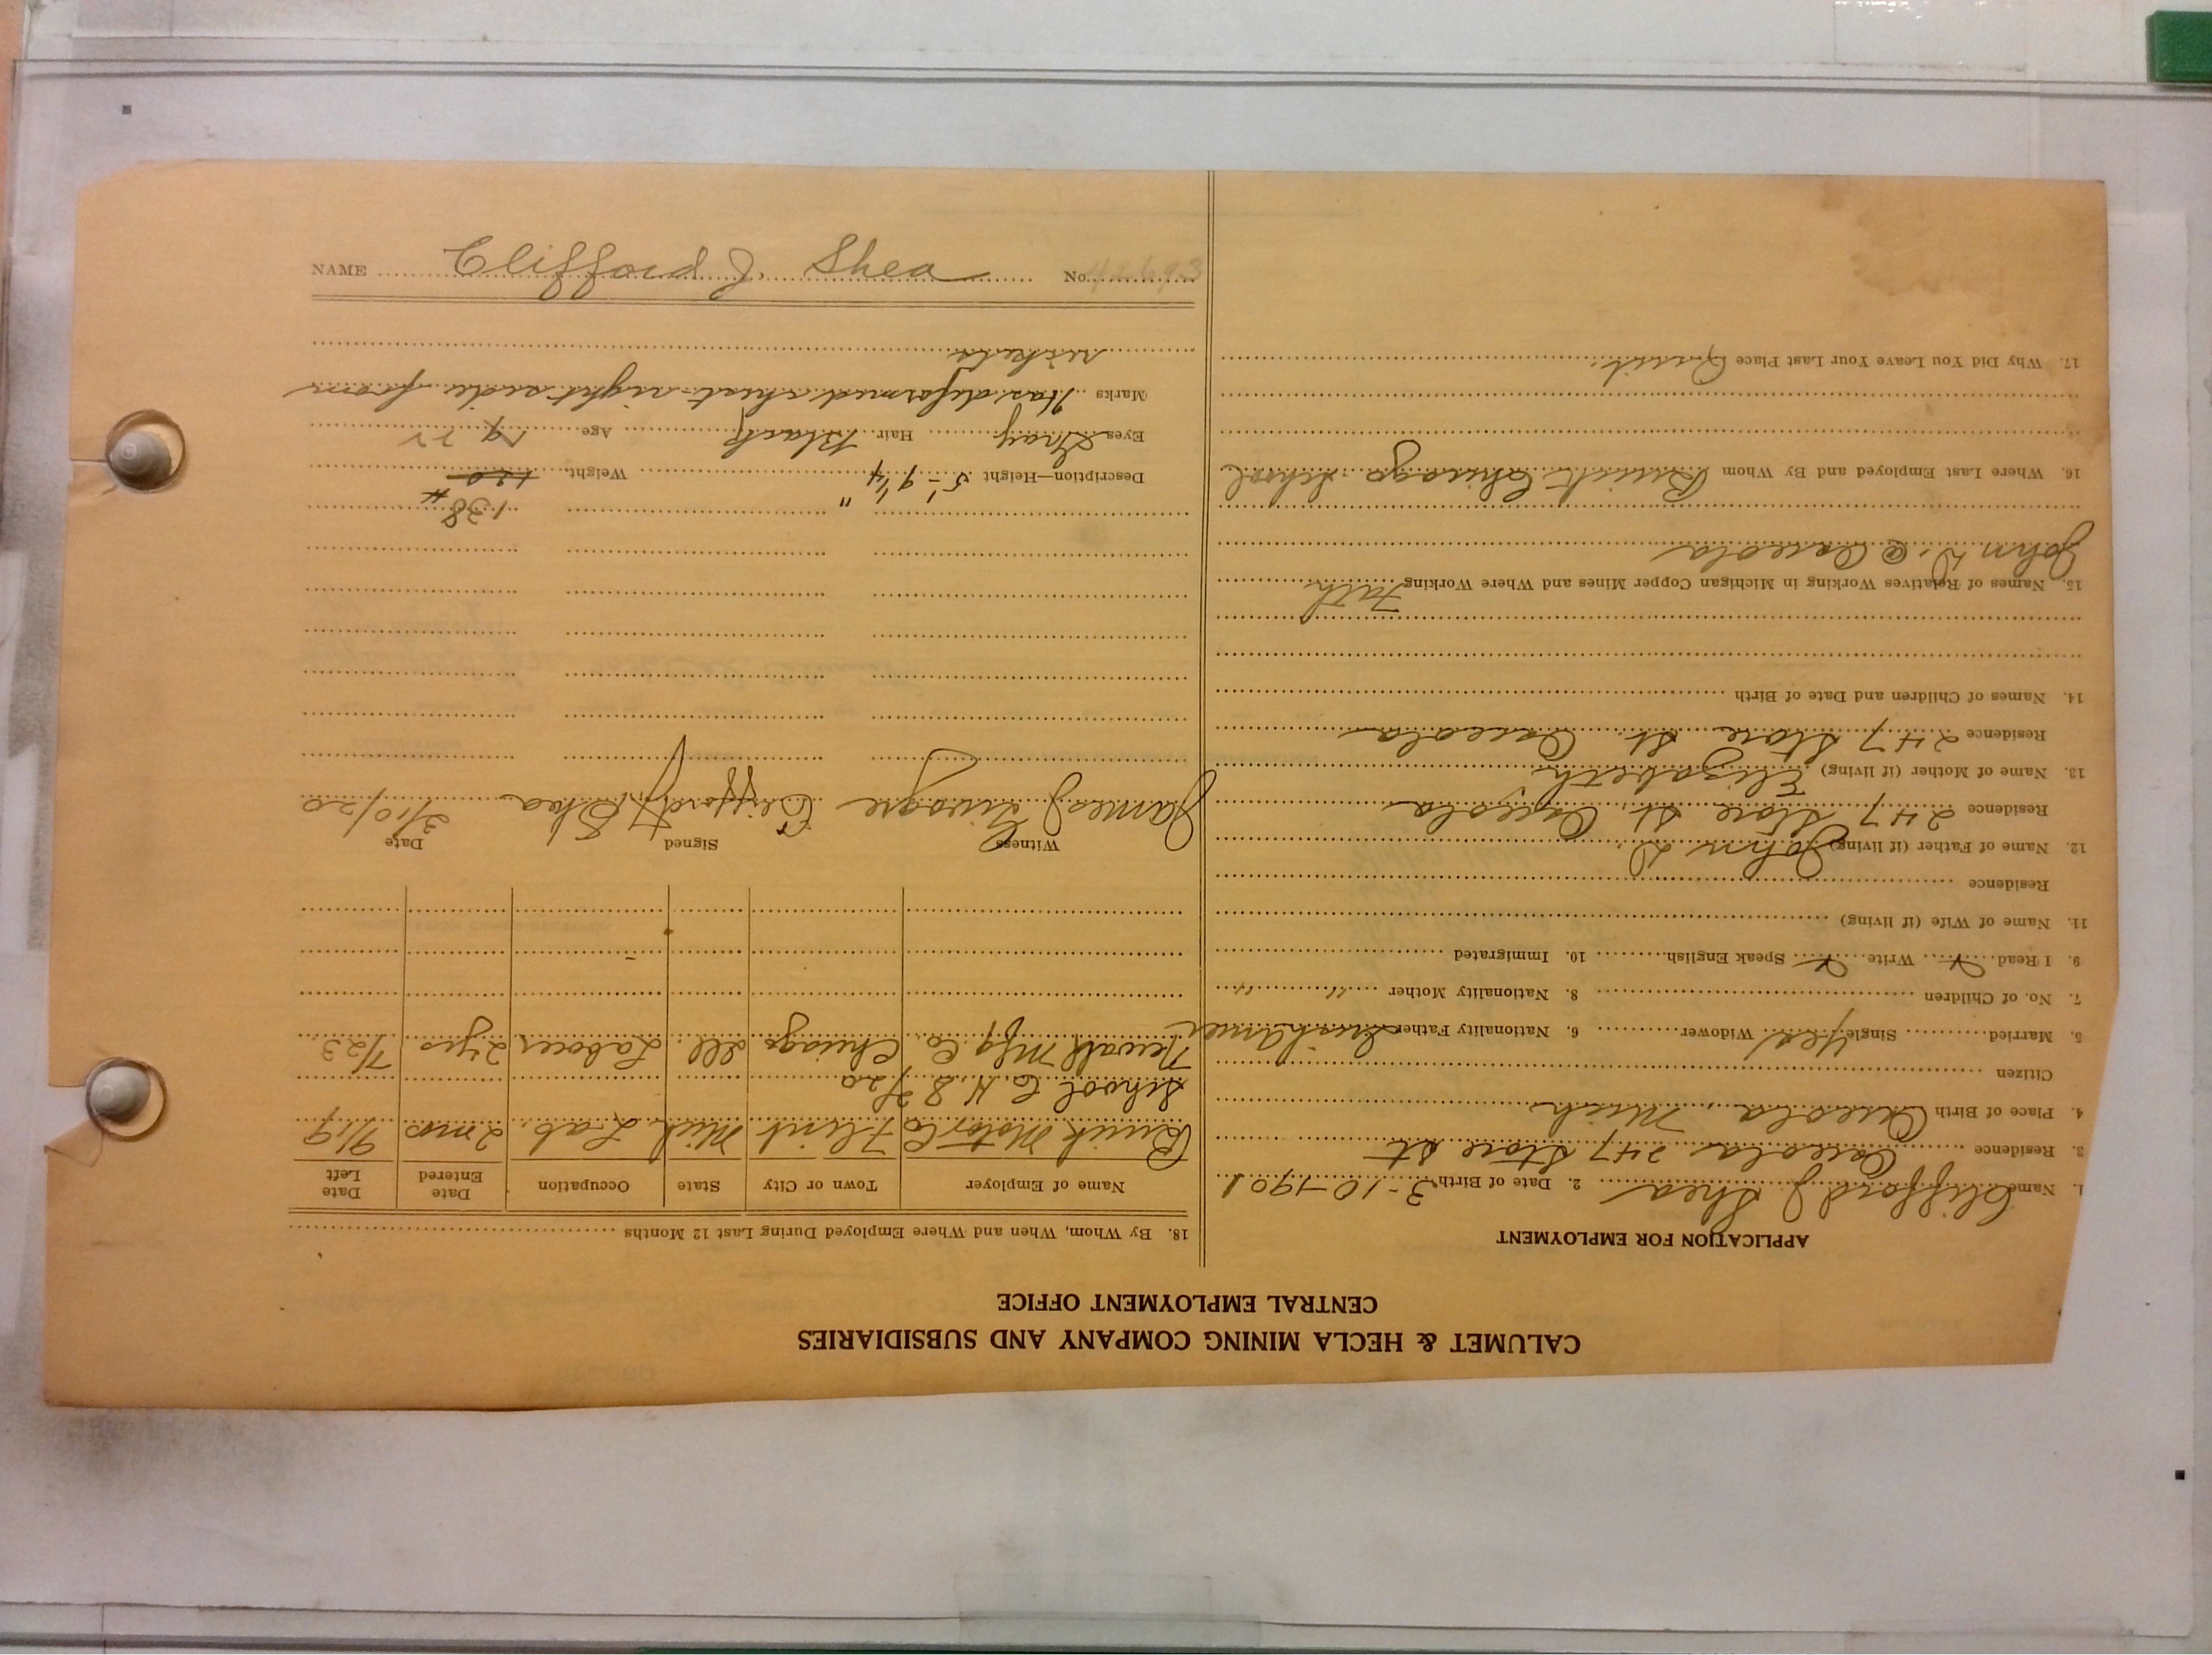 CALUMET & HECLA MINING COMPANY AND SUBSIDIARIES
CENTRAL EMPLOYMENT OFFICE
APPLICATION FOR EMPLOYMENT
1. Name Clifford J Shea 2. Date of Birth 3-10-1901
3. Residence Osceola 247 Stone St
4. Place of Birth Osceola, Mich
Citizen
5. Married Single Yes Widower 6. Nationality Father Irish Amer
7. No. of Children 8. Nationality Mother " "
9. I Read Write Speak English 10. Immigrated
11. Name of Wife (if living)
Residence
12. Name of Father (if living) John D.
Residence 247 Stone St. Osceola
13. Name of Mother (if living) Elizabeth
Residence 247 Stone St. Osceola
14. Names of Children and Date of Birth
15. Names of Relatives Working in Michigan Copper Mines and Where Working Fath
John D. @ Osceola
16. Where Last Employed and By Whom Buick Chicago School
17. Why Did You Leave Your Last Place Quit.
18. By Whom, When and Where Employed During Last 12 Months
Name of Employer Town or City State Occupation Date Entered Date Left
Buick Motor Co Flint Mich. Lab. 2 mos 9/19
School C. H. S 2/20
Mfg. Co. Chicago Ill. Laborer 2 yrs 7/23
Witness Signed Date
James J Clifford J Shea 3/10/20
138 #
Description—Height 5'-9 1/4" Weight 130
Eyes Gray Hair Black Age 19 22
Marks Has deformed chest right side from
rickets
NAME Clifford J. Shea No.